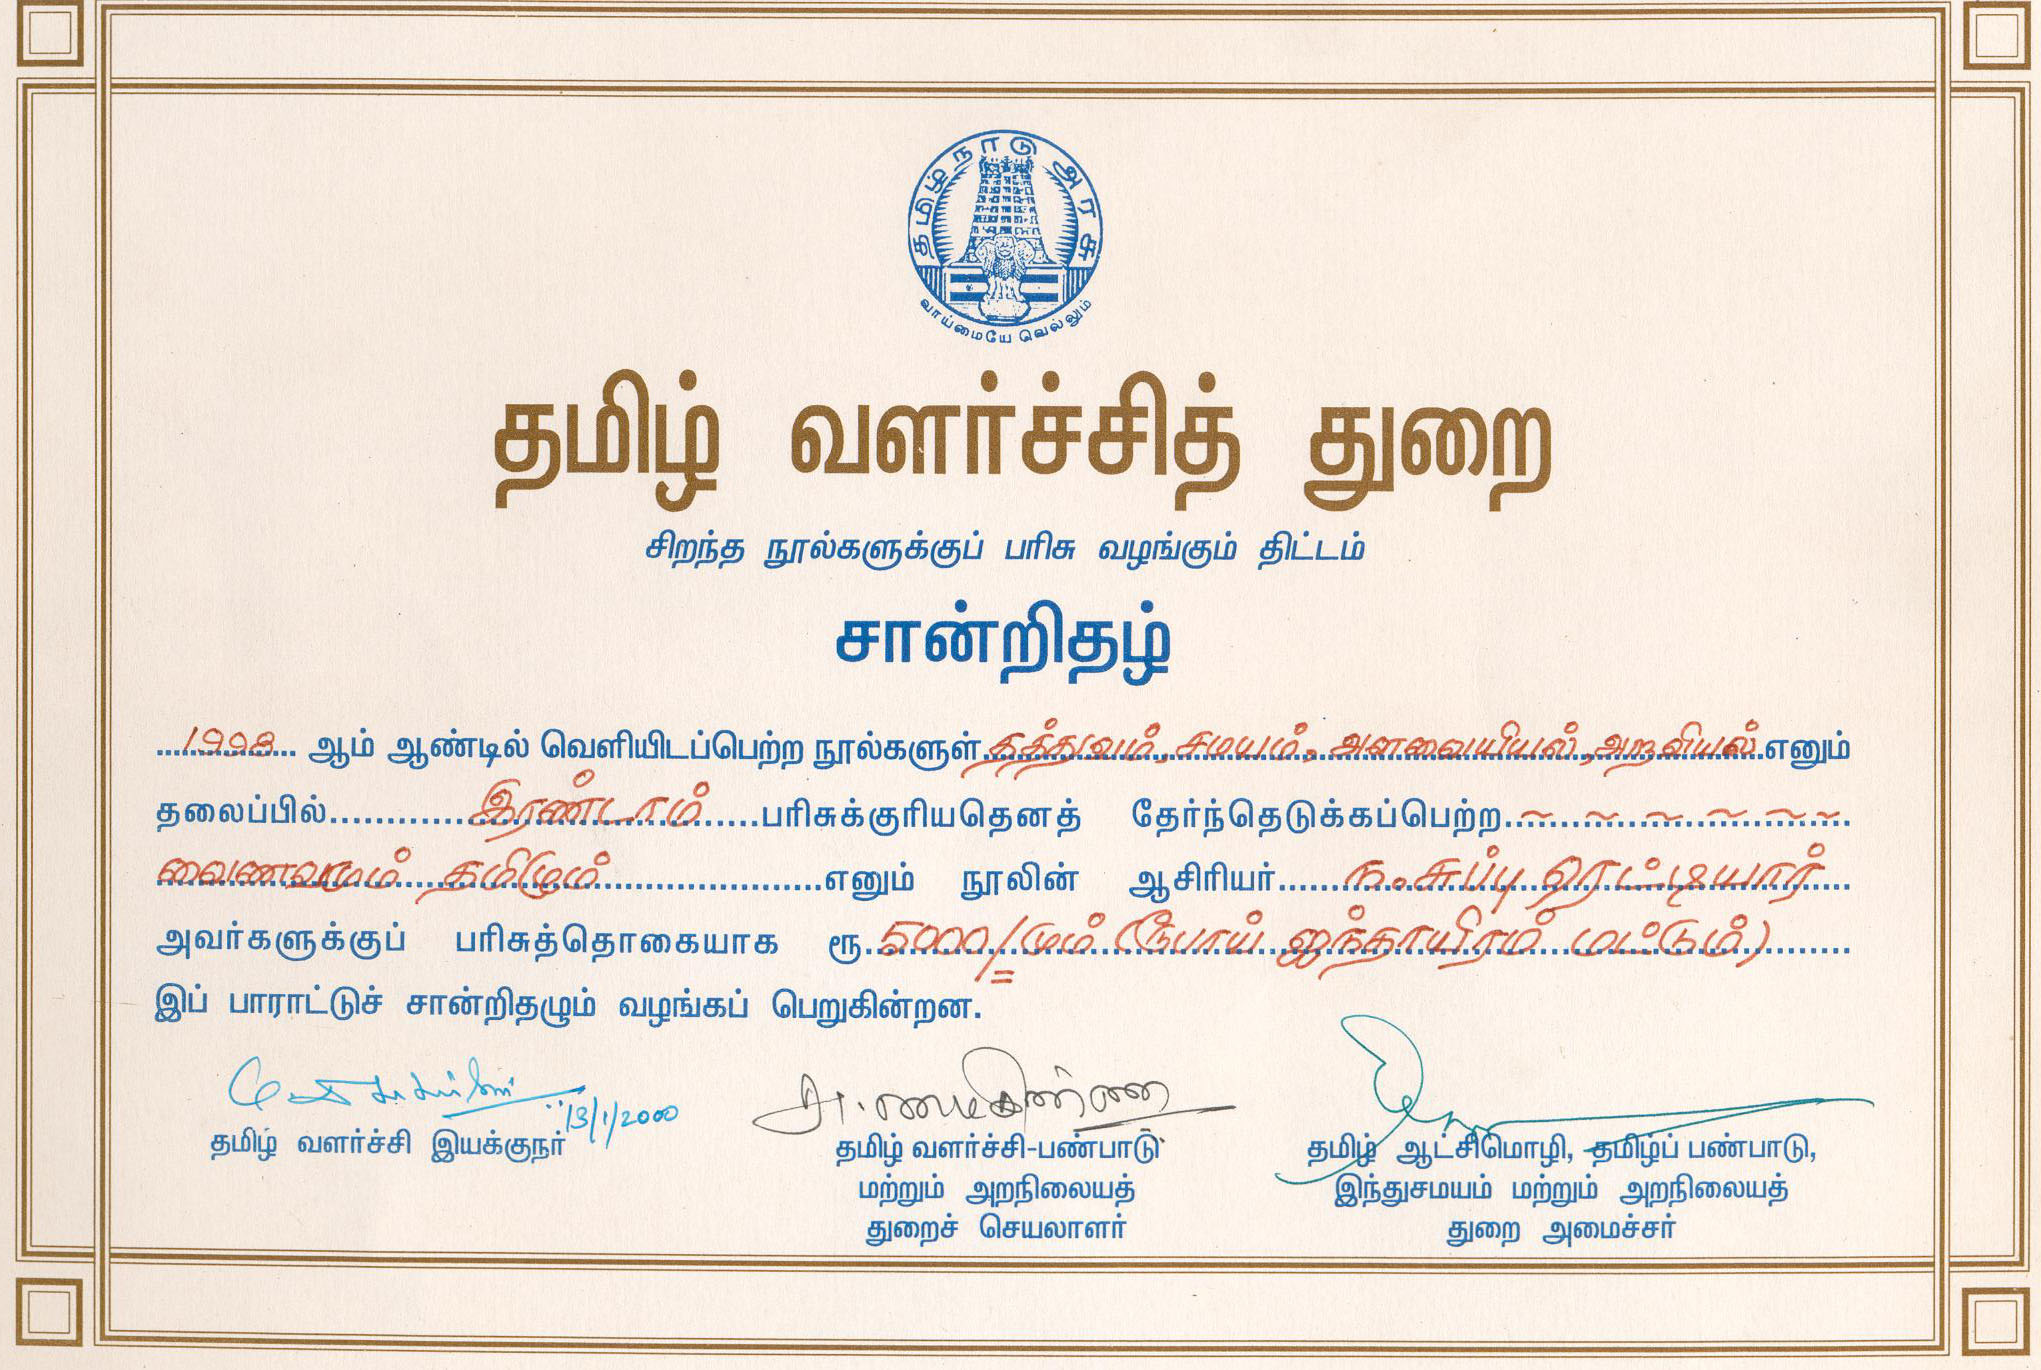 தமிழ்நாடு அரசு
வாய்மையே வெல்லும்
தமிழ் வளர்ச்சித் துறை
சிறந்த நூல்களுக்குப் பரிசு வழங்கும் திட்டம்
சான்றிதழ்
1998 ஆம் ஆண்டில் வெளியிடப்பெற்ற நூல்களுள் தத்துவம், சமயம், அளவையியல், அறவியல் எனும்
தலைப்பில் இரண்டாம் பரிசுக்குரியதெனத் தேர்ந்தெடுக்கப்பெற்ற
வைணவமும் தமிழும் எனும் நூலின் ஆசிரியர் ந. சுப்பு ரெட்டியார்
அவர்களுக்குப் பரிசுத்தொகையாக ரூ 5000/=மும் (ரூபாய் ஐந்தாயிரம் மட்டும்)
இப் பாராட்டுச் சான்றிதழும் வழங்கப் பெறுகின்றன.
13/1/2000
தமிழ் வளர்ச்சி இயக்குநர்
தமிழ் வளர்ச்சி-பண்பாடு
மற்றும் அறநிலையத்
துறைச் செயலாளர்
தமிழ் ஆட்சிமொழி, தமிழ்ப் பண்பாடு,
இந்துசமயம் மற்றும் அறநிலையத்
துறை அமைச்சர்